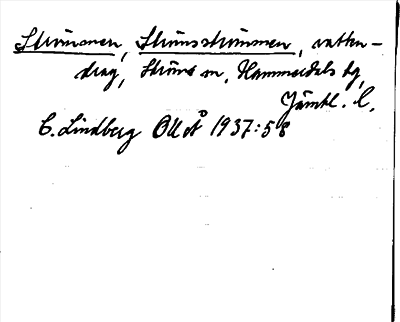 Strömmen, Strömsströmmen, vatten-
drag, Ströms sn, Hammerdals tg,
Jämtl. l.
C. Lindberg OUÅ 1937:58